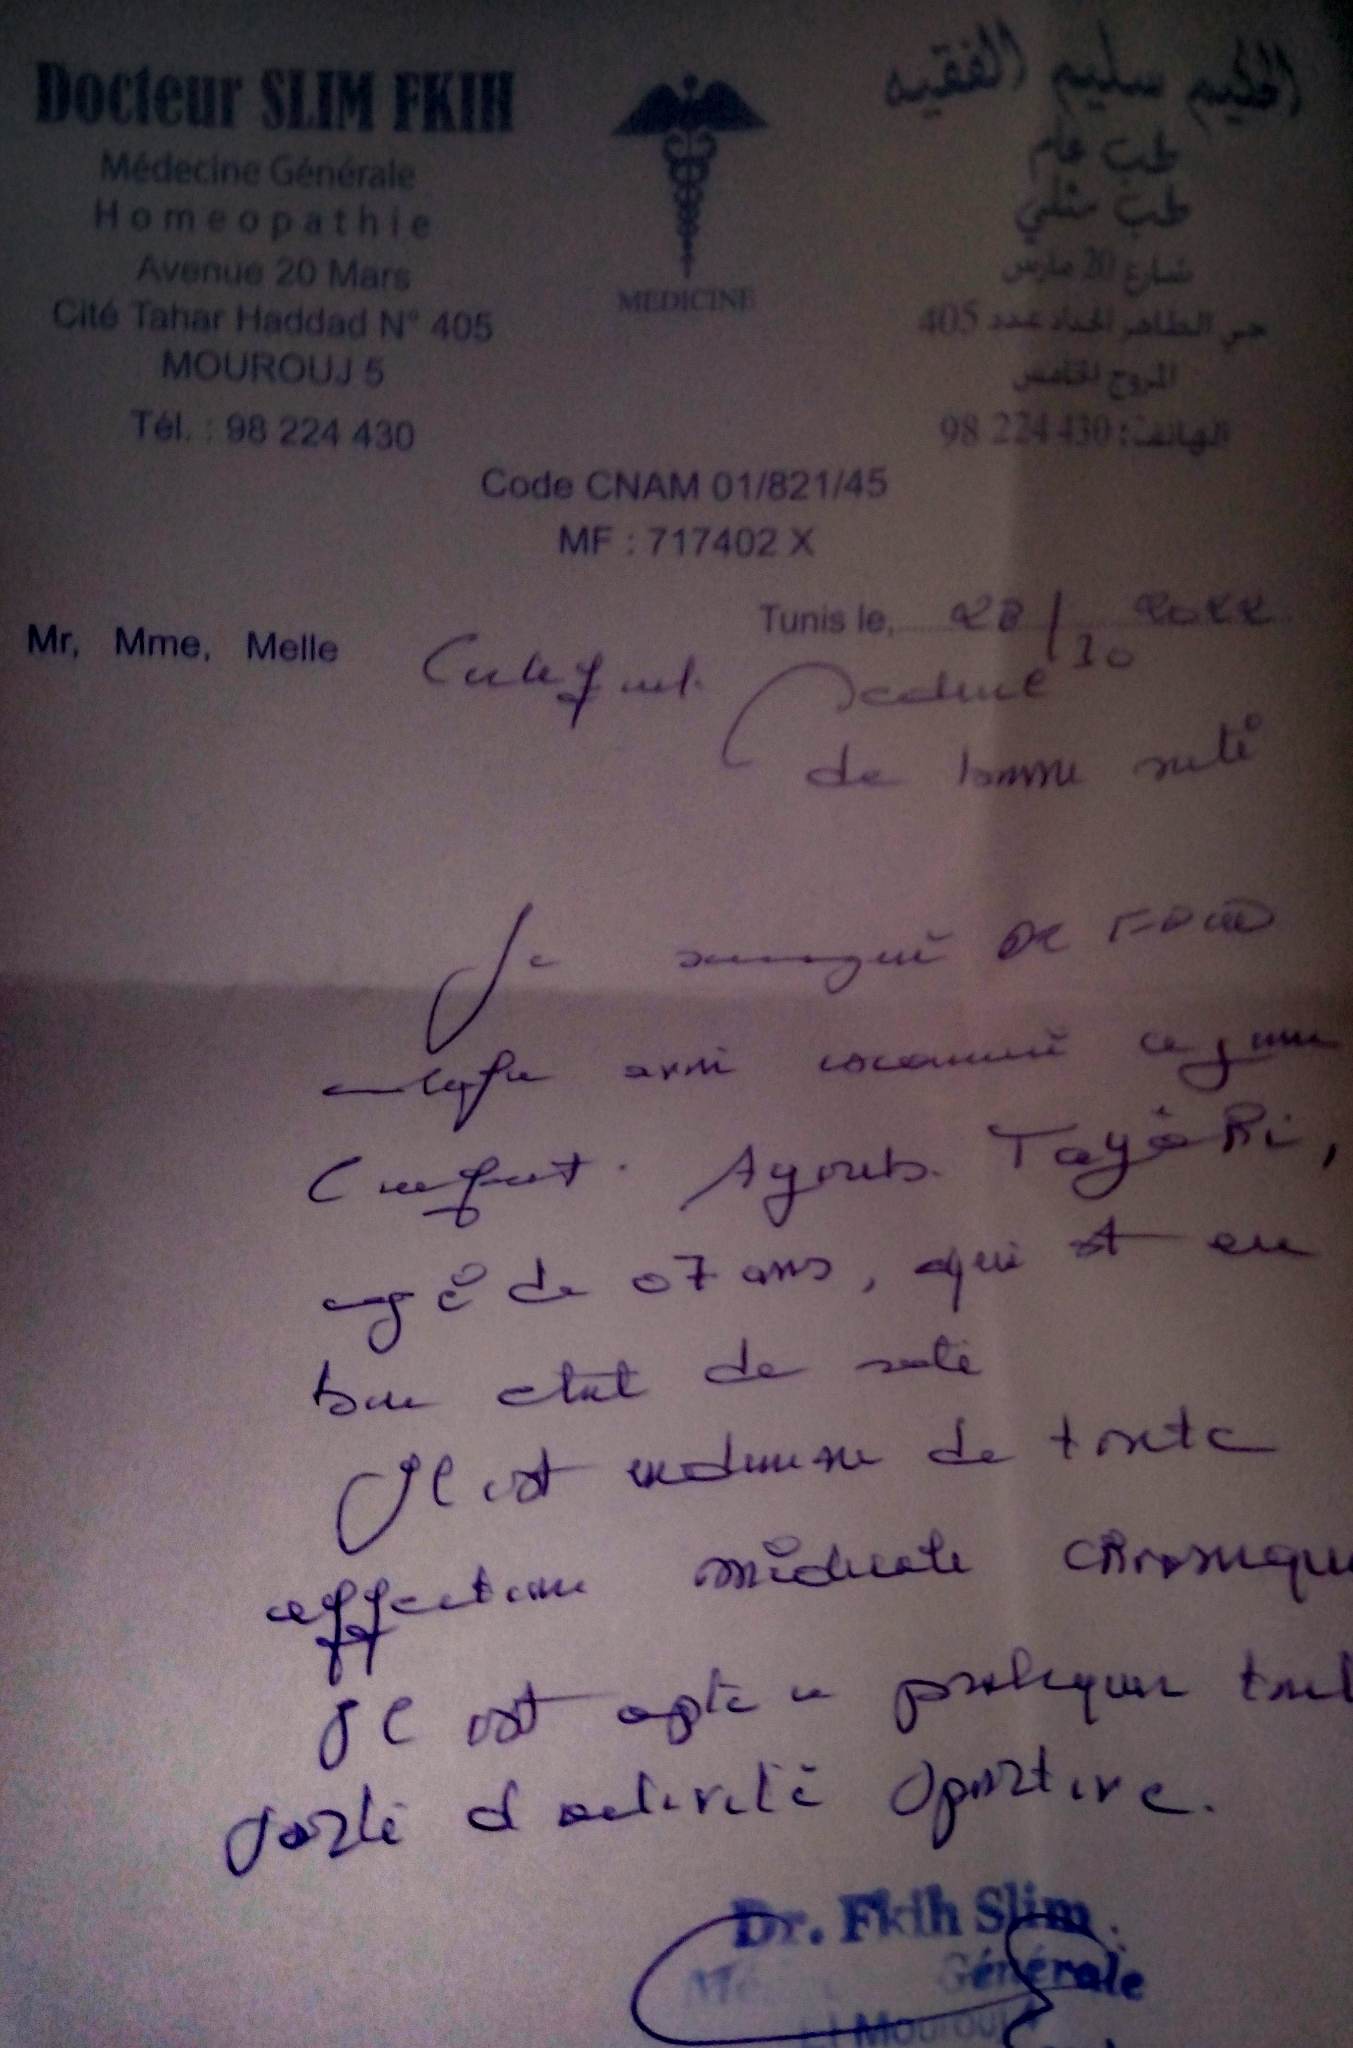 Docteur SLIM FKIH
Médecine Générale
Homeopathie
Avenue 20 Mars
Cité Tahar Haddad N° 405
MOUROUJ 5
Tél. : 98 224 430
MEDICINE
الحكيم سليم الفقيه
طب عام
طب مثلي
شارع 20 مارس
حي الطاهر الحداد عدد 405
المروج الخامس
الهاتف : 98 224 430
Code CNAM 01/821/45
MF : 717402 X
Tunis le, 28/10 2022
Mr, Mme, Melle Certificat médical
de bonne santé
Je soussigné DR
avoir examiné ce jour
l'enfant Ayoub Tayari,
agé de 07 ans, qui est en
bon état de santé
Il est indemne de toute
affection médicale chronique
Il est apte à pratiquer tout
sorte d'activité sportive.
Dr. Fkih Slim
Générale
El Mourouj